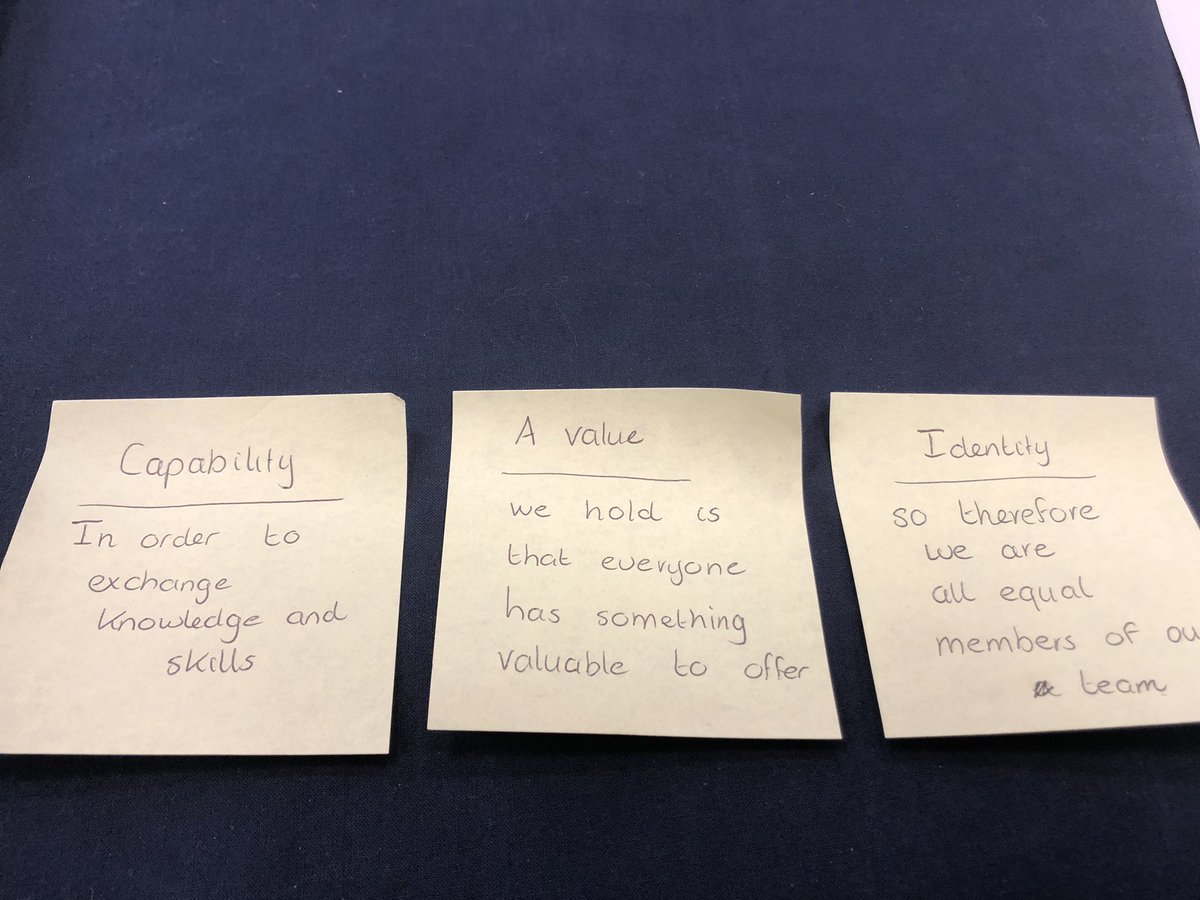 Capability
In order to
exchange
knowledge and
skills
A value
we hold is
that everyone
has something
valuable to offer
Identity
so therefore
we are
all equal
members of ou
team